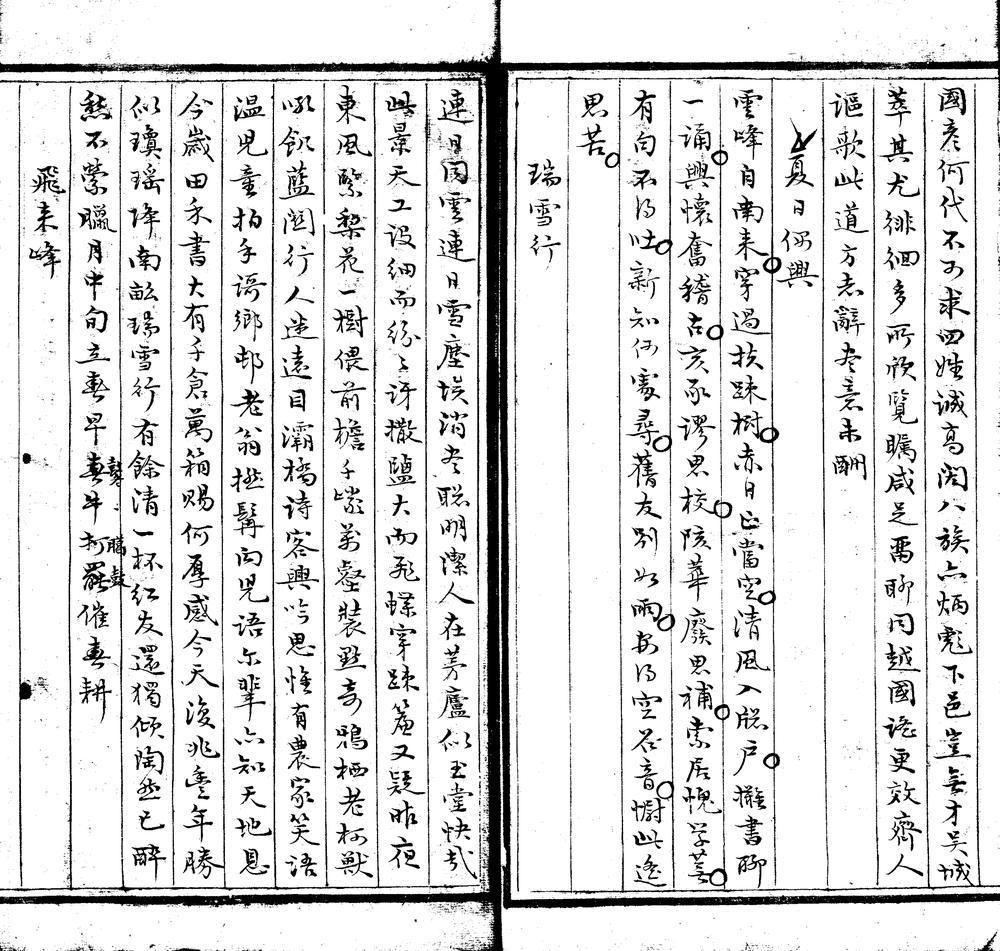 國彥何代不可求四姓誠高閎八族亦炳彪下邑豈無才吳城
萃其尤徘徊多所欣覽矚咸足留聊同越國謠更效齊人
謳歌此道方志辭尽意未酬
夏日偶興
雲峰自南来穿過扶疎樹赤日正當空清風入牕戶攤書聊
一誦興懷奮稽古亥豕謬思校陔華廢思補索居愧学荒
有句不得吐新知何處尋舊友别如雨安得空谷音慰此遙
思苦
瑞雪行
連日同雲連日雪塵埃消尽聡明潔人在茅廬似玉堂快哉
此景天工设細而紛々讶撒鹽大而飛蝶穿疎簾又疑昨夜
東風緊梨花一樹偎前檐千巖萬壑裝點奇鴉栖老树獸
吼飢藍関行人迷遠目灞橋诗客興吟思惟有農家笑语
温児童拍手謌鄉邨老翁撚髯向児语尔輩亦知天地恩
今歲田禾書大有千倉萬箱赐何厚感今天復兆豊年勝
似瓊瑶降南畝瑞雪行有餘清一杯红友還獨倾陶然已醉
愁不縈臘月中旬立春早春牛打罷催春耕
鼕々臘鼓
飛来峰